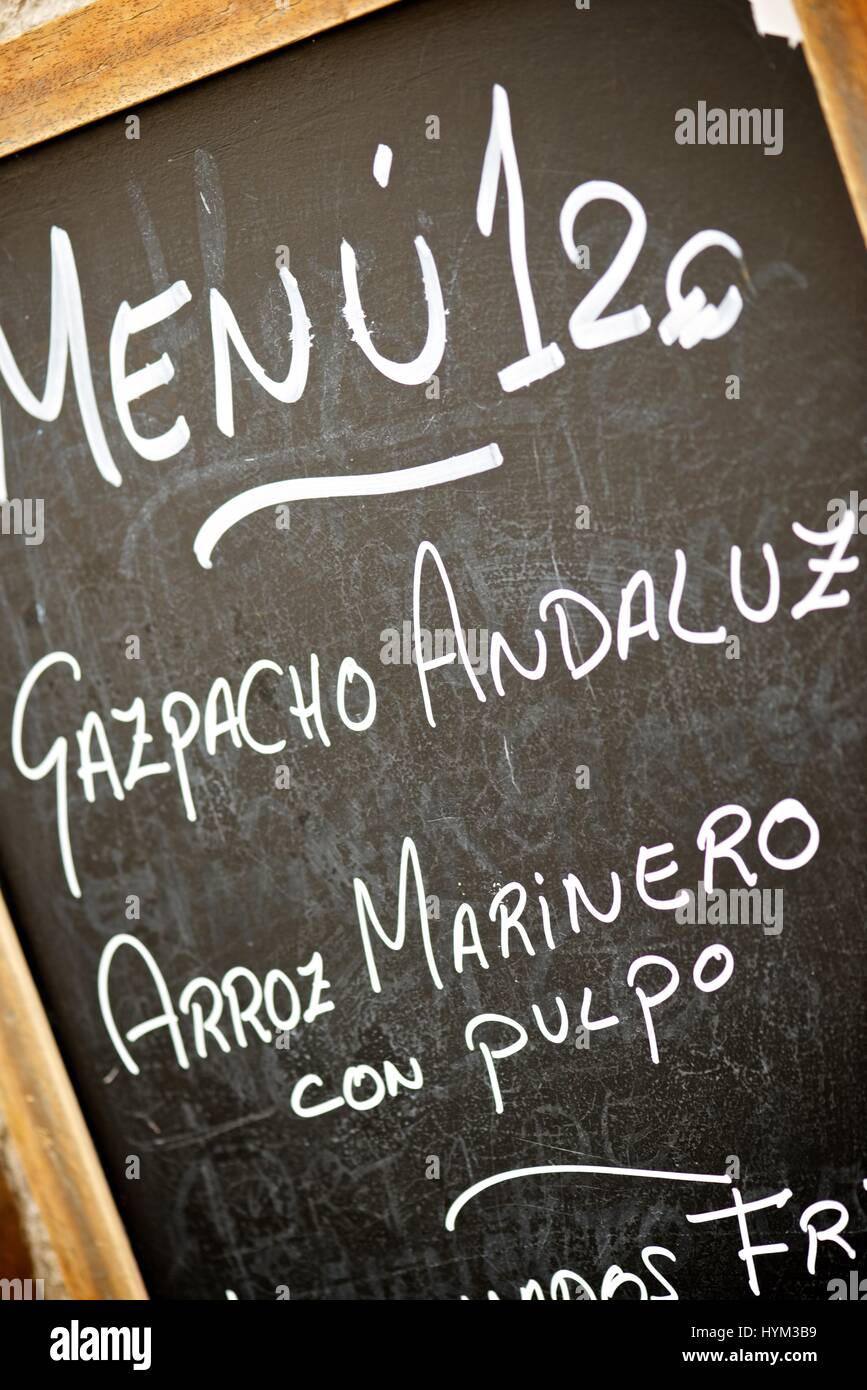 MENÚ 12€
GAZPACHO ANDALUZ
ARROZ MARINERO
CON PULPO
alamy
Image ID: HYM3B9
www.alamy.com